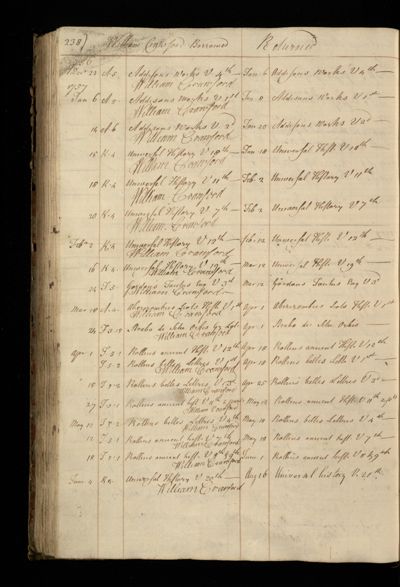 238) William Craufurd Borrowed Returned
1756
Novr 22 A.5. Addisons Works V 4th — Jan 6 Addisons Works V 4th —
William Crawford
1757
Jan 6 A.5 Addisons Works V 1st — Jan 11 Addisons Works V 1st —
William Crawford
14 A.6 Addisons Works V 2d — Jan 20 Addisons Works V 2d —
William Crawford
15 K.4 Universal History V 10th — Jan 18 Universal Hist. V 10th —
William Crawford
18 K.4 Universal History V 11th — Feb 2 Universal History V 11th
William Crawford
20 K.4 Universal History V 7th — Feb 2 Universal History V 7th
William Crawford
Feb 2 K.4 Universal History V 12th — Feb. 12 Universal Hist. V 12th —
William Crawford
16 K.4 Universal History V 19th — Mar 12 Universal Hist. V 19th —
William Crawford
24 F.5 Gordons Tacitus Eng V 3d Mar 12 Gordons Tacitus Eng V 3d
William Crawford
Mar 18 Abercrombies Scots Hist. V 1st Apr 1 Abercrombies Scots Hist. V 1st
William Crawford
24 Strabo de situ Orbis Apr 1 Strabo de situ Orbis
William Crawford
Apr 1 F.5.1 Rollins ancient Hist. V 12th Apr 18 Rollins ancient Hist. V 12th
F.5.2 Rollins belles Lettres V 1st Apr 18 Rollins belles Lettr. V 1st —
William Crawford
18 F.5.2 Rollins belles Lettres V 3d Apr 25 Rollins belles Lettres V 3d —
William Crawford
27 F.5.1 Rollins ancient hist V 11th 2 parts May 12 Rollins ancient Hist. V 11th 2 parts
William Crawford
May 11 F.5.2 Rollins belles Lettres V 4th May 18 Rollins belles Lettres V 4th —
William Crawford
12 F.5.1 Rollins ancient hist. V 7th May 18 Rollins ancient hist. V 7th —
William Crawford
18 F.5.1 Rollins ancient hist. V 8 & 9th June 1 Rollins ancient hist. V 8 & 9th —
William Crawford
June 4 K.4 Universal History V 20th — Aug 16 Universal history V. 20th.
William Crawford